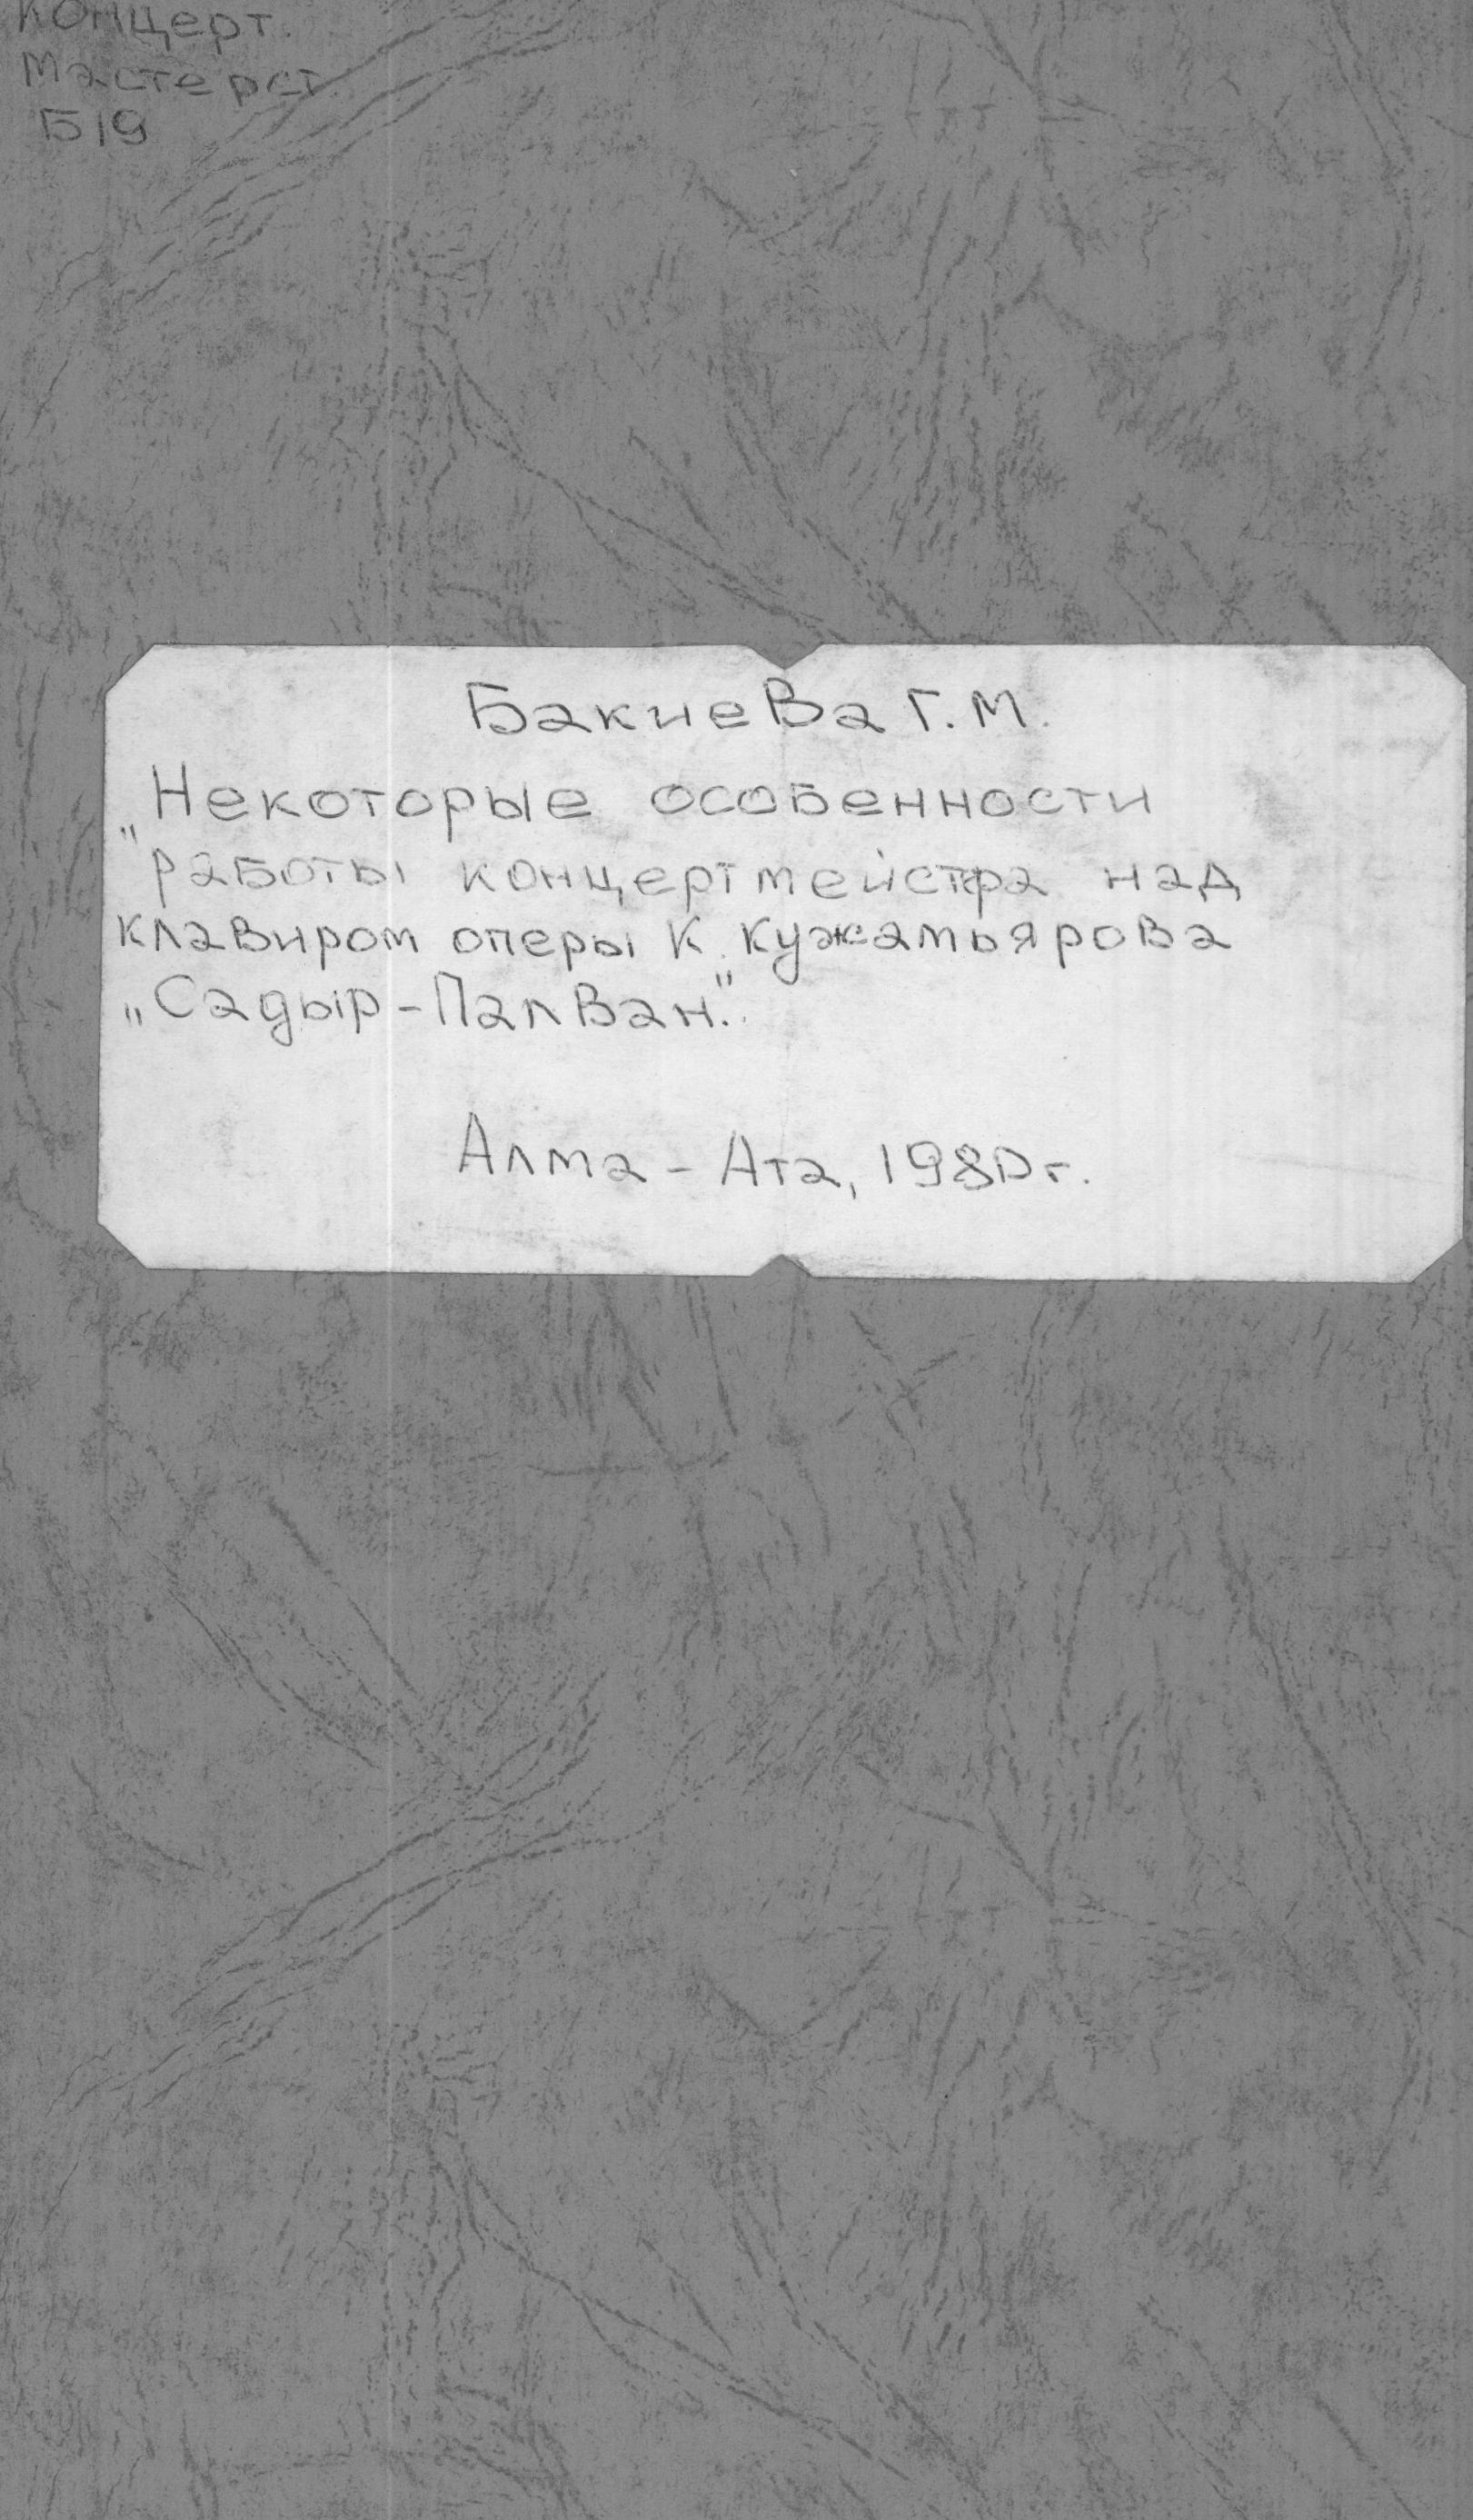 Концерт.
мастерст.
Б19
Бакиева Г.М.
„Некоторые особенности
работы концертмейстра над
клавиром оперы К. Кужамьярова
„Садыр-Палван.".
Алма-Ата, 1980г.